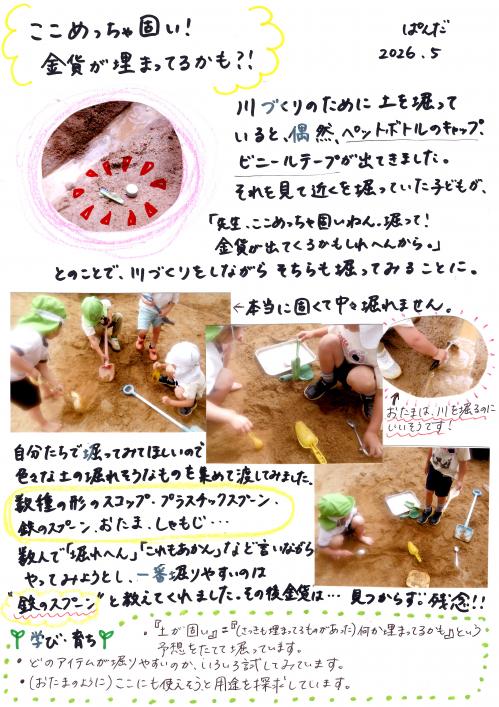 ここめっちゃ固い!
金貨が埋まってるかも?!
ぱんだ
2026.5
川づくりのために土を掘って
いると、偶然、ペットボトルのキャップ、
ビニールテープが出てきました。
それを見て近くを掘っていた子どもが、
「先生、ここめっちゃ固いねん。掘って!
金貨が出てくるかもしれへんから。」
とのことで、川づくりをしながらそちらも掘ってみることに。
←本当に固くて中々掘れません。
↑
おたまは、川を掘るのに
いいそうです!
自分たちで掘ってみてほしいので
色々な土の掘れそうなものを集めて渡してみました。
数種の形のスコップ・プラスチックスプーン、
鉄のスプーン、おたま、しゃもじ・・・
数人で「掘れへん」「これもあかん」など言いながら
やってみようとし、一番掘りやすいのは
"鉄のスプーン"と教えてくれました。その後金貨は…見つからず。残念!!
学び・育ち
・『土が固い』=『(さっきも埋まってるものがあった)何か埋まてるかも』という
予想をたてて掘っています。
・どのアイテムが掘りやすいのか、いろいろ試してみています。
・(おたまのように)ここにも使えそうと用途を探求しています。